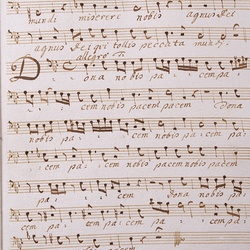 mundi miserere nobis agnus Dei
agnus Dei qui tollis peccata mundi
allegro
Dona nobis pa
cem nobis pacem pacem Dona
nobis pa cem pa
cem pa cem nobis pacem nobis pacem
pa cem Dona nobis
pa cem pa
cem pa cem pa cem
pacem